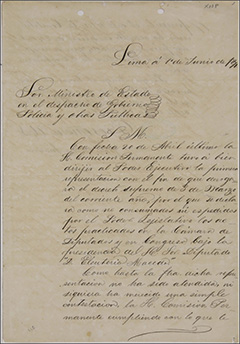 Lima á 1º Junio de
Sor Ministro de Estado
en el despacho de Gobierno
Policia y obras Publicas
S. M.
Con fecha 20 de Abril ultimo la
H. Comision Permanente tuvo á bien
dirijir al Poder Ejecutivo la primera
representacion con el fin de que
el decreto supremo de 2 de Marzo
del corriente año, por el que se
como no
por
el Poder Legislativo los
practicados en la Cámara de
Diputados y en Congreso bajo la
presidencia del H. Sor Diputado
D.
Como hasta la fha dicha
sentacion no ha sido atendida, ni
siquiera ha merecido una simple
contestacion, la H. Comision Per-
manente cumpliendo con lo que le